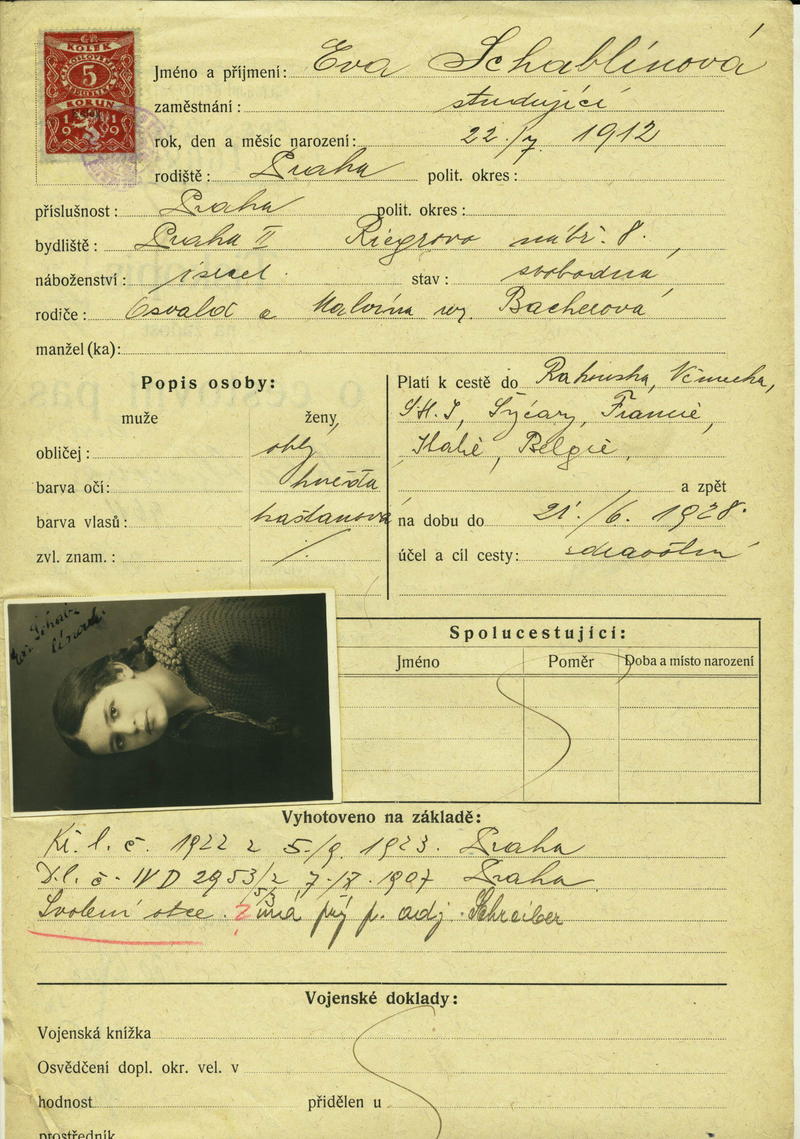 KOLEK
5
KORUN
1919
Jméno a příjmení: Eva Schablínová
zaměstnání: studující
rok, den a měsíc narození: 22./7. 1912
rodiště: Praha polit. okres:
příslušnost: Praha polit. okres:
bydliště: Praha II Riegrovo nábř. 8.
náboženství: israel. stav: svobodná
rodiče: Osvald a Malvína roz. Bacherová
manžel (ka):
Popis osoby:
muže ženy
obličej: oblý
barva očí: hnědá
barva vlasů: kaštanová
zvl. znam.: /.
Platí k cestě do Rakouska, Německa,
S.H.S., Švýcar, Francie,
Italie, Belgie,
a zpět
na dobu do 21./6. 1928.
účel a cíl cesty: zdravotní
Eva Schab-
línová.
Spolucestující:
Jméno Poměr Doba a místo narození
Vyhotoveno na základě:
Kř. l. č. 1922 z 5./9. 1923. Praha
D. l. č. IV D 2953/2 1907 Praha
Svolení otce. má p. adj. Schreiber
Vojenské doklady:
Vojenská knížka
Osvědčení dopl. okr. vel. v
hodnost přidělen u
prostředník